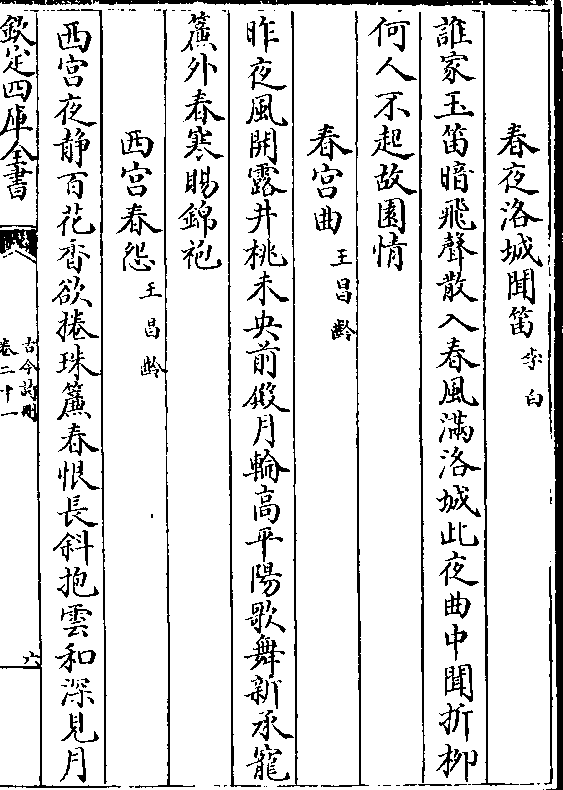 春夜洛城聞笛 李白
誰家玉笛暗飛聲散入春風滿洛城此夜曲中聞折柳
何人不起故園情
春宮曲 王昌齡
昨夜風開露井桃未央前殿月輪高平陽歌舞新承寵
簾外春寒賜錦袍
西宮春怨 王昌齡
西宮夜静百花香欲捲珠簾春恨長斜抱雲和深見月
欽定四庫全書
古今詩刪
卷二十一
六